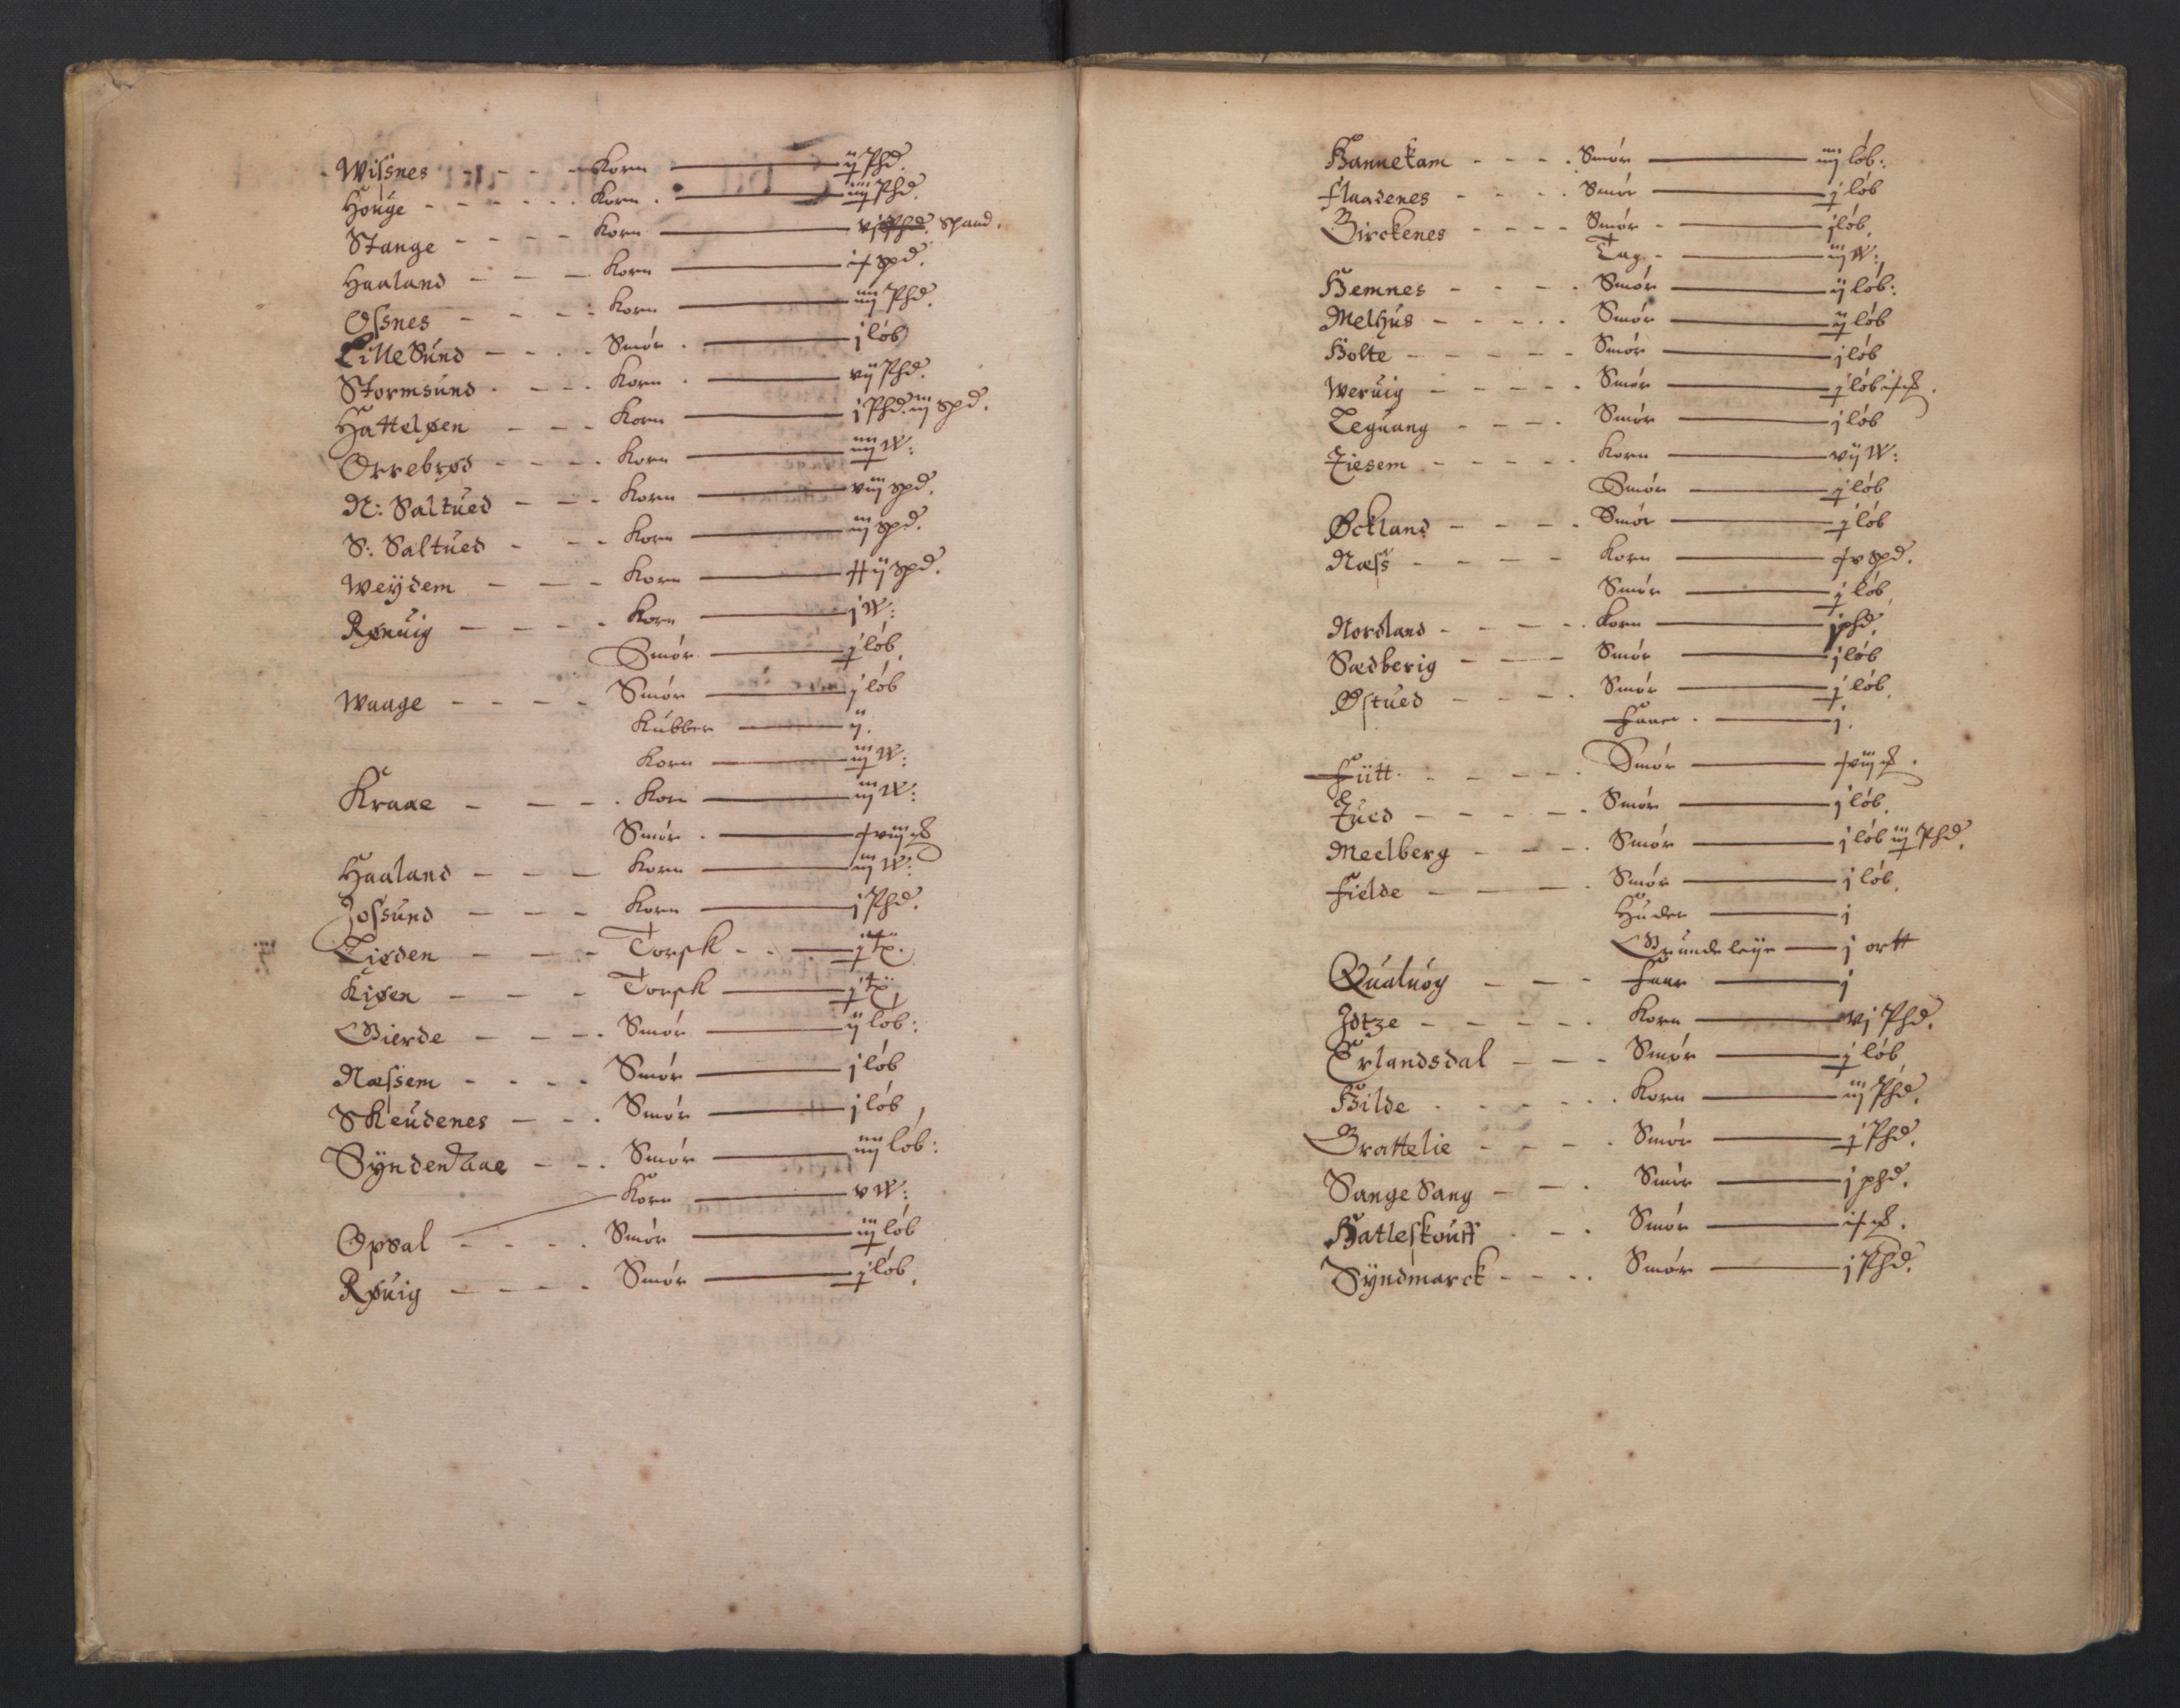 Wissnes - - - - Korn — ij Phd.
Houge - - - - - - Korn — iiij Phd.
Stange - - - - Korn — vj Phd. spand.
Haaland - - - Korn — spd.
Ossnes - - - - Korn — iiij Phd.
LilleSund - - - - Smór — j lób
Stormsund - - - - Korn — vij Phd.
Hatteløen - - - Korn — j Phd. iij spd.
Orrebrød - - - - Korn — iiij W:
N: Saltued - - - Korn — viij spd.
S: Saltued - - - Korn — iij spd.
Weÿdem - - - Korn — ij spd.
Rønuig - - - - Korn — j W:
Smór — j lób
Waage - - - - Smór — j lób
Kubber — ij.
Korn — iij W:
Kraae - - - - Korn — iij W:
Smór —
Haaland - - - Korn — iij W:
Jossund - - - Korn — j Phd.
Lieden - - - Torsk - - — j tp.
Kiøen - - - Torsk — j tp
Gierde - - - - Smór — ij lób:
Næssem - - - - Smór — j lób
Skeudenes - - - Smór — j lób
Sÿndenaae - - - Smór — iiij lób:
Korn — v W:
Opsal - - - - Smór — iij lób
Røuig - - - - Smór — j lób
Hannekam - - - - Smór — iiij lób:
Flaadenes - - - - Smór — j lób
Birckenes - - - - Smór - — j lób
Tag - — iij W:
Hemnes - - - - Smór — ij lób:
Melhus - - - - - Smór — ij lób
Holte - - - - - Smór — j lób
Weruig - - - - - Smór — j lób
Leguang - - - - Smór — j lób
Tiesem - - - - - Korn — vij W:
Smór — j lób
Øckland - - - - Smór — j lób
Næss - - - - Korn — v spd.
Smór — j lób
Nordland - - - - Korn — j phd.
Sædberig - - - Smór — j lób
Østued - - - - Smór — j lób
Faar - — j.
Fütt - - - - - Smór —
Tued - - - - - Smór — j lób
Meelberg - - - - Smór — j lób iij Phd.
Fielde - - - - Smór — j lób
Huder — j
Grundeleÿe — j ortt
Qualuog - - - Faar — j
Jdtze - - - - - Korn — vj Phd.
Erlandsdal - - - Smór — j lób
Hilde - - - - - - Korn — iij Phd.
Brattelie - - - - Smór — j Phd.
SangeSang - - - Smór — j phd.
Hatleskouff - - - Smór —
Sÿndmarck - - - - Smór — j Phd.